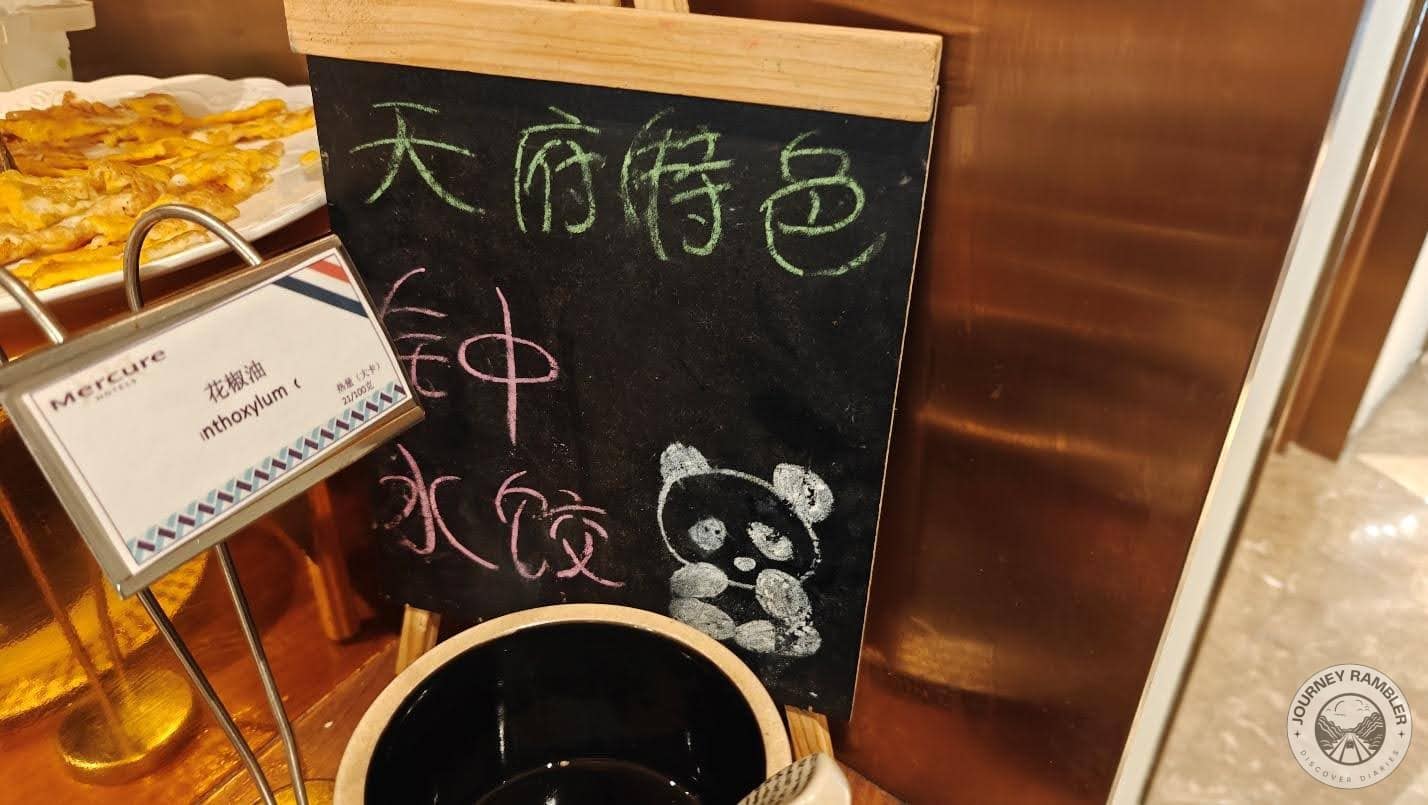 天府特色
钟
水饺
Mercure
HOTELS
花椒油
nthoxylum
热量（大卡）
21/100克
JOURNEY RAMBLER
DISCOVER DIARIES